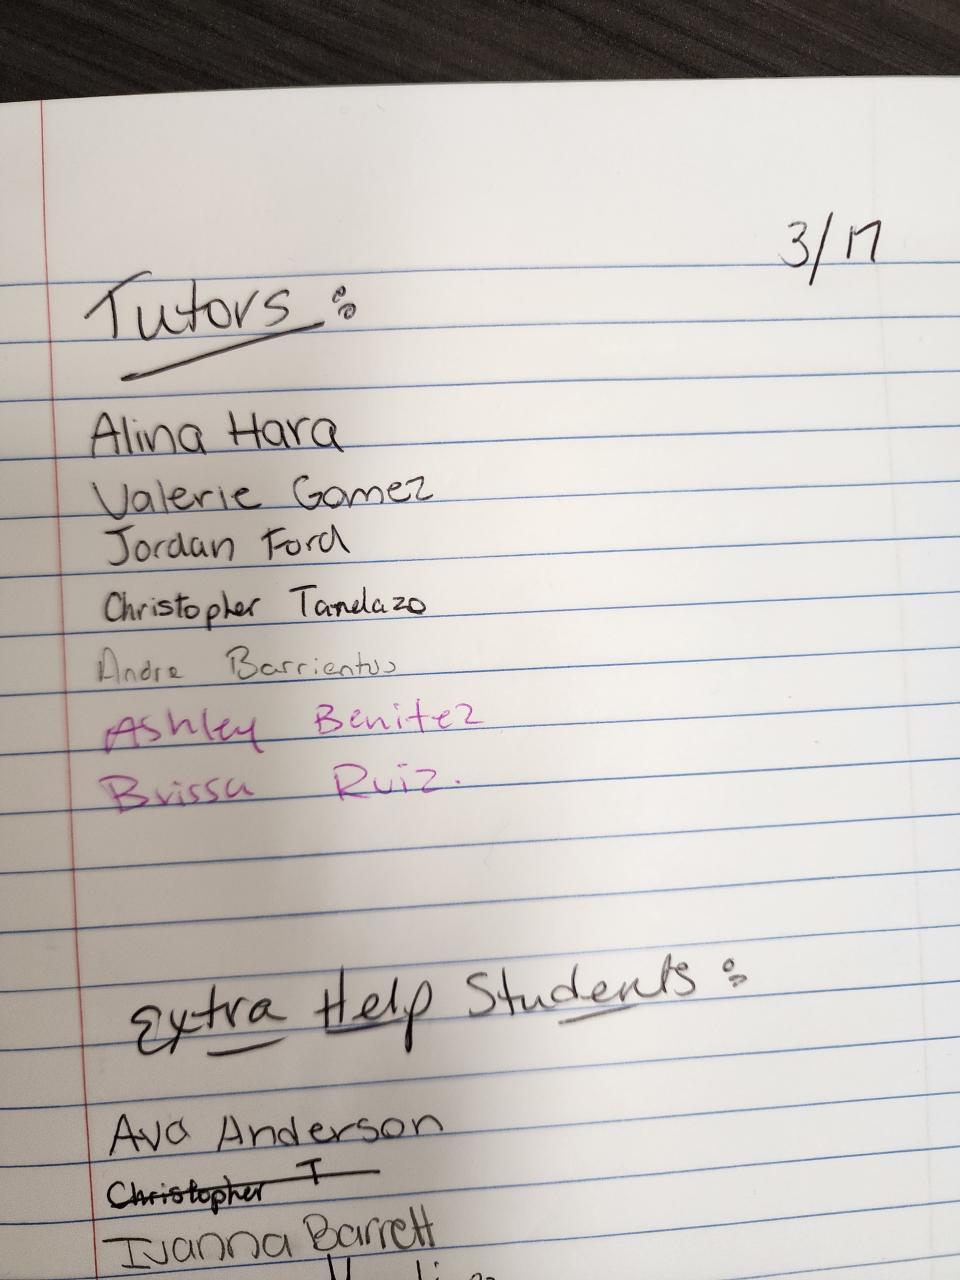 3/17
Tutors:
Alina Hara
Valerie Gomez
Jordan Ford
Christopher Tandazo
Andre Barrientos
Ashley Benitez
Brissa Ruiz.
Extra Help Students:
Ava Anderson
Christopher T
Ivanna Barrett